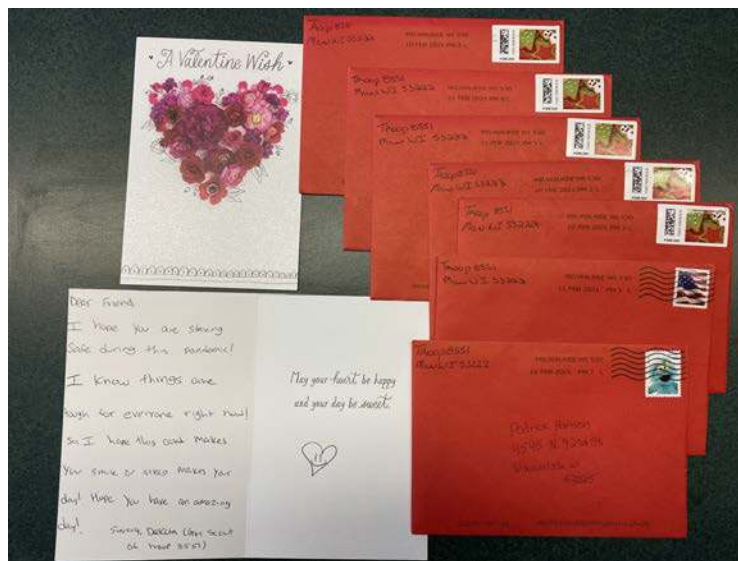 A Valentine Wish
Troop 8551
Milw WI 53222
MILWAUKEE WI 530
10 FEB 2021 PM
Troop 8551
Milw WI 53222
MILWAUKEE WI 530
Troop 8551
Milw WI 53222
MILWAUKEE WI 530
Troop 8551
Milw WI 53222
MILWAUKEE WI 530
Troop 8551
Milw WI 53222
MILWAUKEE WI 530
Troop 8551
Milw WI 53222
MILWAUKEE WI 530
Troop 8551
Milw WI 53222
MILWAUKEE WI 530
Patrick
Dear Friend
I hope you are staying
safe during this pandemic!
I know things are
tough for everyone right now!
So I hope this card makes
you smile or makes your
day! Hope you have an amazing
day! Sincerely, Scout
of troop 8551)
May your heart be happy
and your day be sweet.